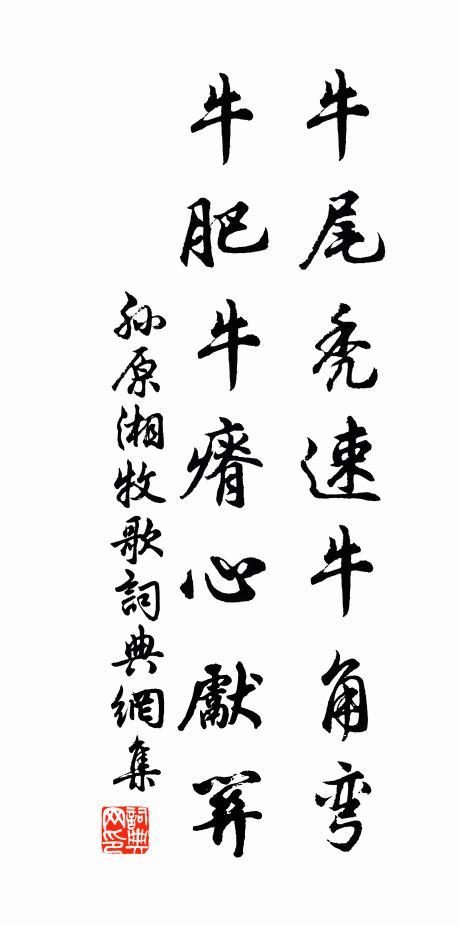 牛尾秃速牛角弯
牛肥牛瘠心獻
孙原湘牧歌詞典網集
詞典网印